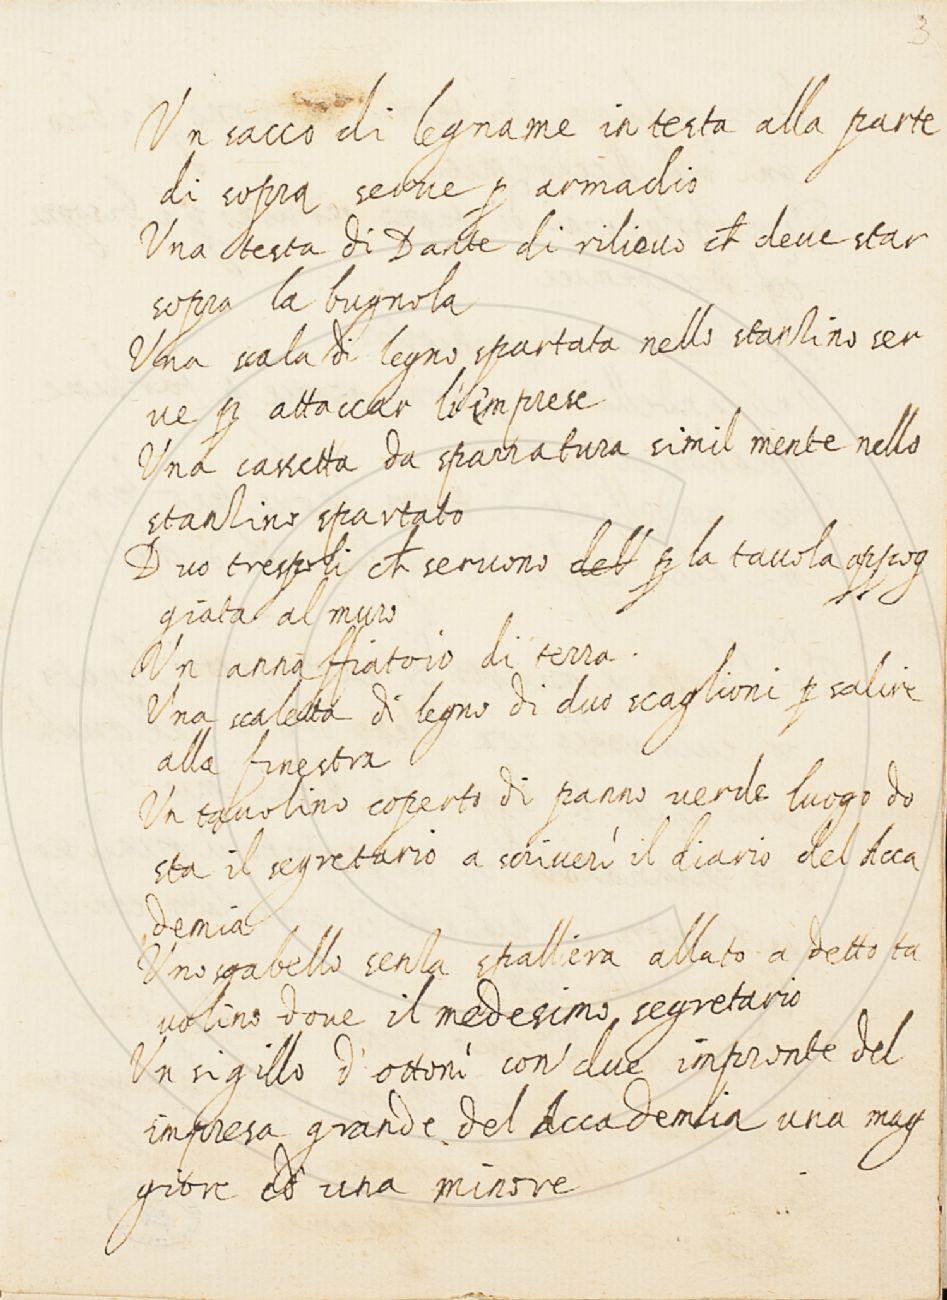 3
Un sacco di legname in testa alla parte
di sopra serue p armadio
Una testa di Dante di rilieuo ch deue star
sopra la bugnola
Una scala di legno spartata nello stanzino ser
ue p attaccar li imprese
Una cassetta da sparratura similmente nello
stanzino spartato
Duo trespoli ch seruono dell p la tauola appog
giata al muro
Un annaffiatoio di terra.
Una scaletta di legno di duo scaglioni p salire
alla finestra
Un tauolino coperto di panno uerde luogo do
sta il segretario a scriueri il diario del Acca
demia
Uno sgabello senza spalliera allato a detto ta
uolino doue il medesimo segretario
Un sigillo d'ottoni con due impronte del
impresa grande del Accademia una mag
giore ed una minore